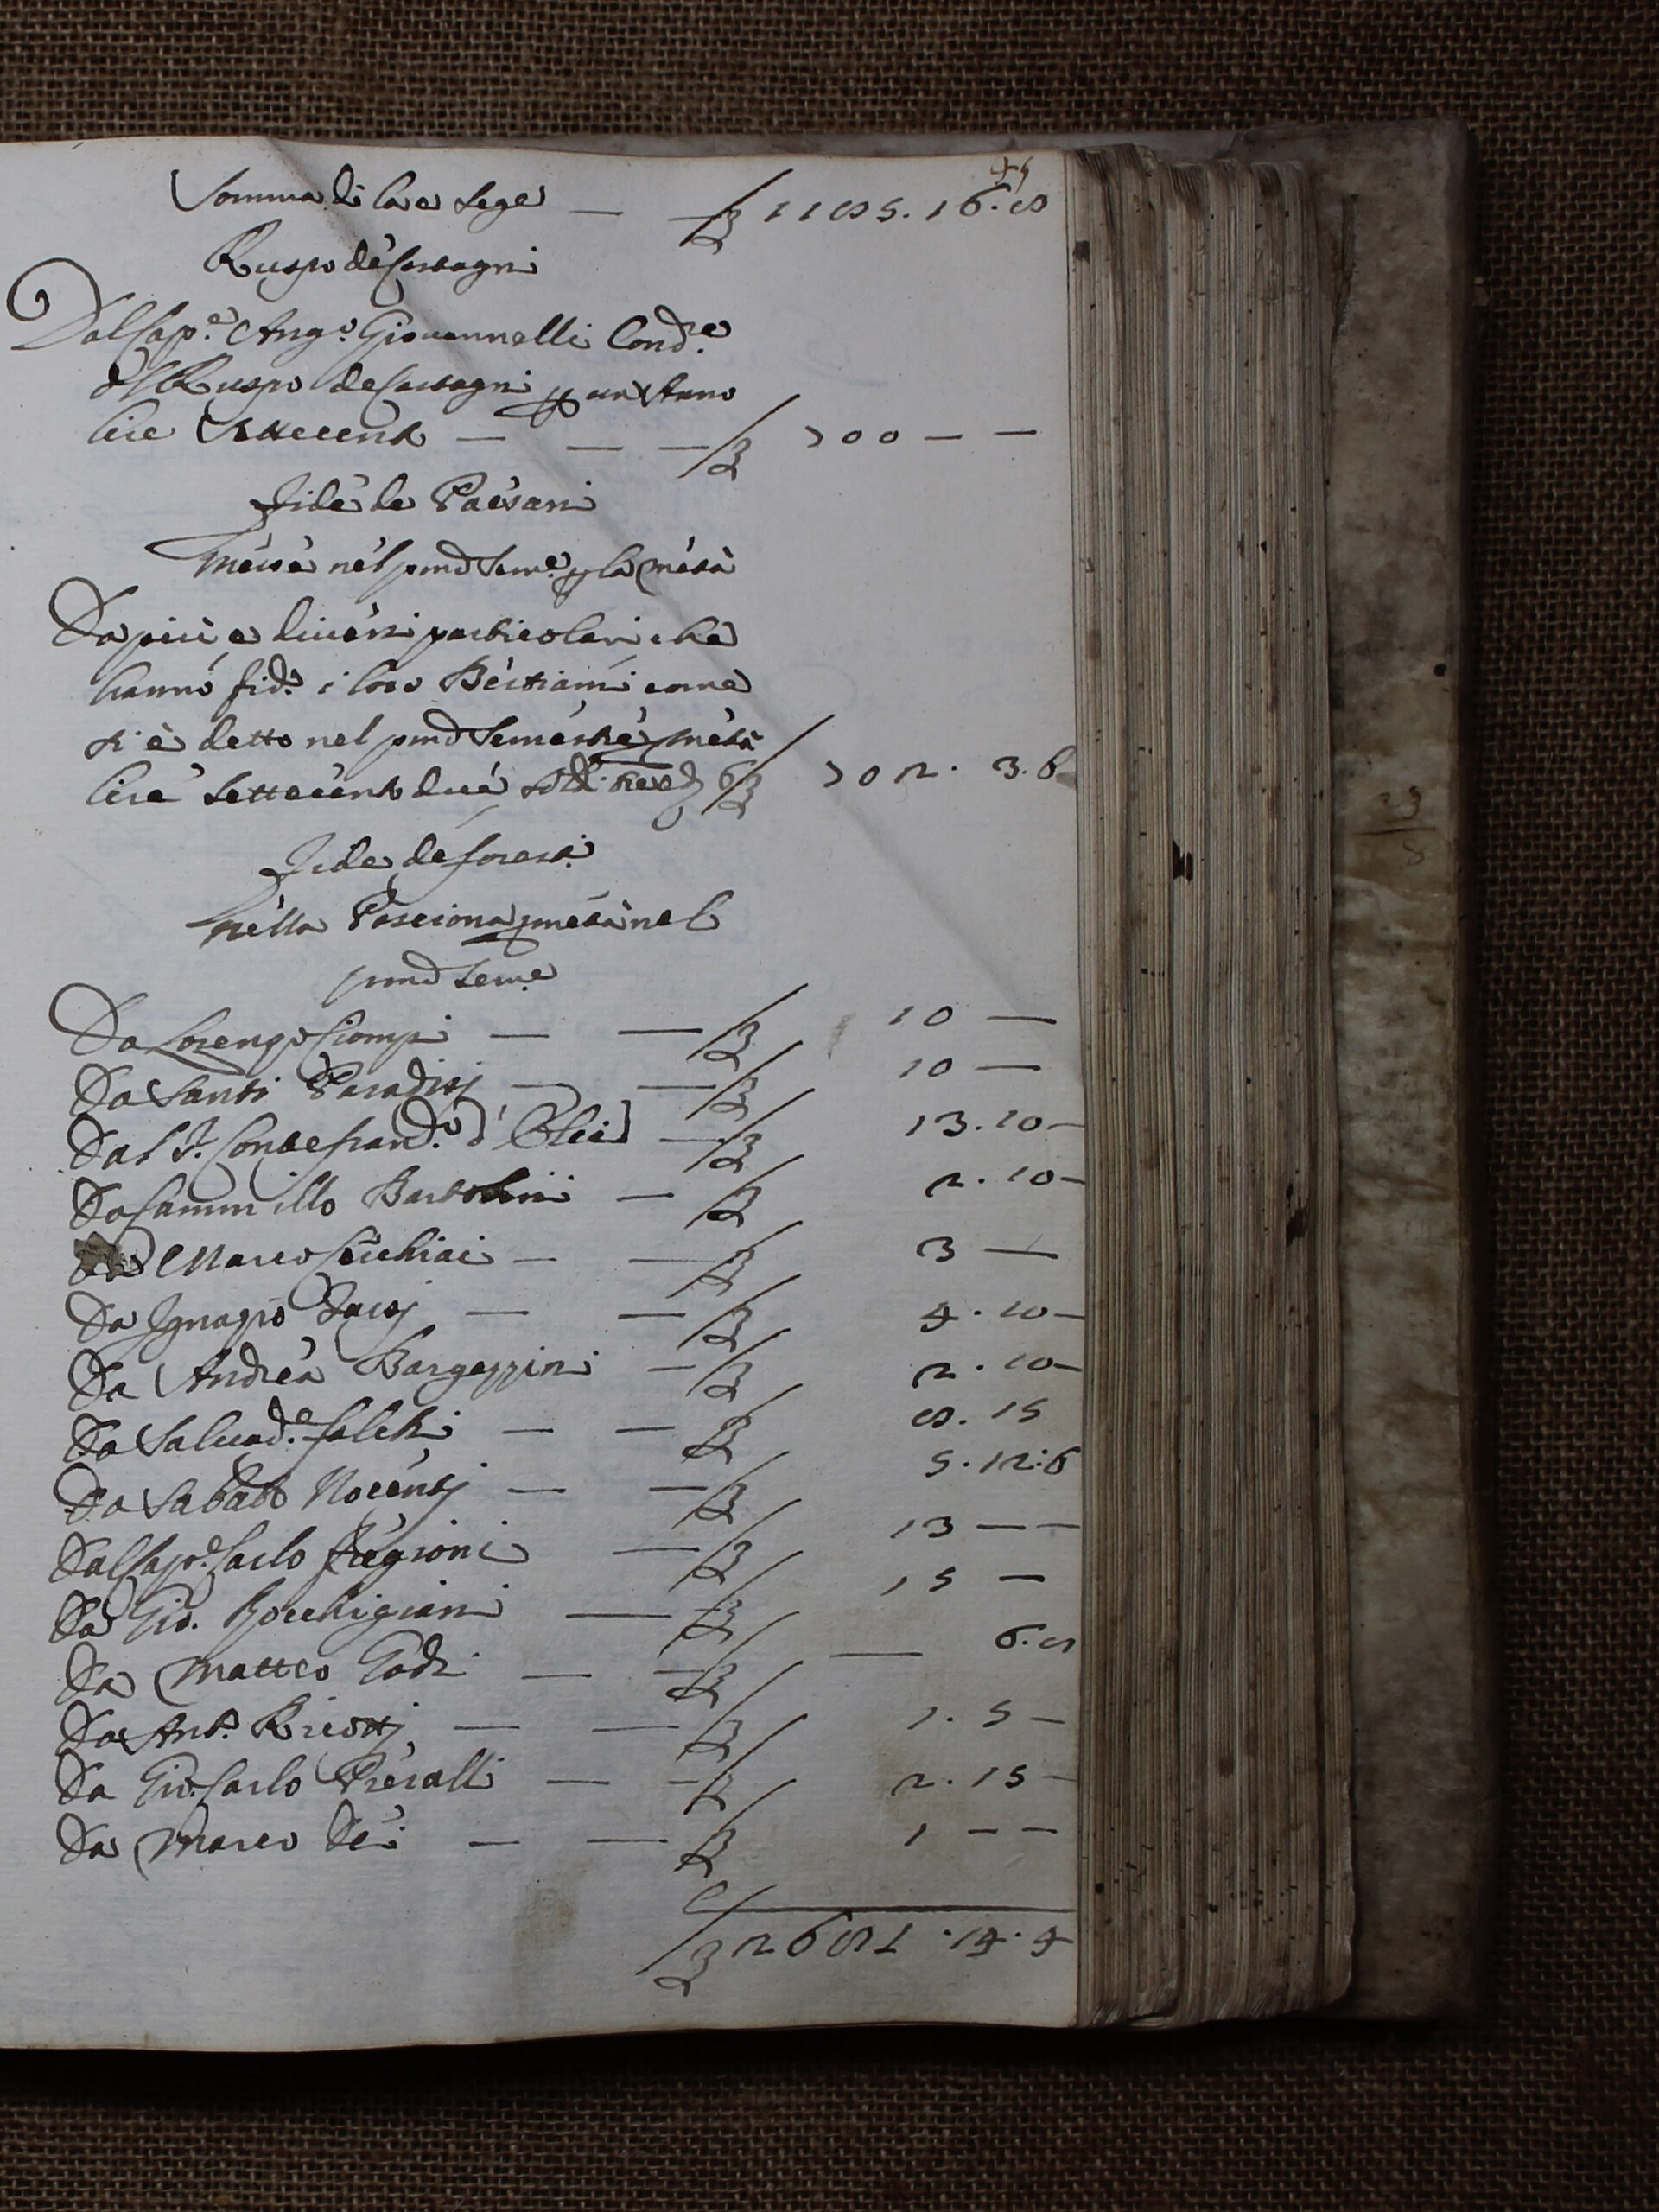 45
Somma di la e segue — — £ 1185. 16. 8
Ruspo de Castagni
Dal Cap.e Ang.o Giovannelli Cond.e
del Ruspo de Castagni p un Anno
lire Settecento — — — £ 700 — —
Fide de Paesani
Messe nel pmo Seme.e p la metà
Da più e diversi particolari che
hanno fid.o i loro Bestiami come
si è detto nel pmo Semestre p metà
lire Settecento due soldi tre e d 6 £ 702. 3. 6
Fide de forest.i
nella Pasciona p metà nel
pmo Sem.e
Da Lorenzo Ciompi — — £ 10 —
Da Santi Paradisj — — £ 10 —
Dal S. Conte Ferand.o d'Elci — £ 13. 10 —
Da Cammillo Bartolini — £ 2. 10 —
Da Marco Cecchiai — — £ 3 —
Da Ignazio Tassj — — £ 4. 10 —
Da Andrea Bargagini — £ 2. 10 —
Da Salvad.e Falchi — — £ 8. 15
Da Sabato Nocentj — — £ 5. 12: 6
Dal Cap.e Carlo Fregioni — £ 13 — —
Da Gio. Bocchigiani — £ 15 —
Da Matteo Godi — — £ — 6. 8
Da Ant.o Ricottj — — £ 1. 5 —
Da Gio. Carlo Presalli — — £ 2. 15 —
Da Marco Dei — — £ 1 — —
£ 2681. 14. 4